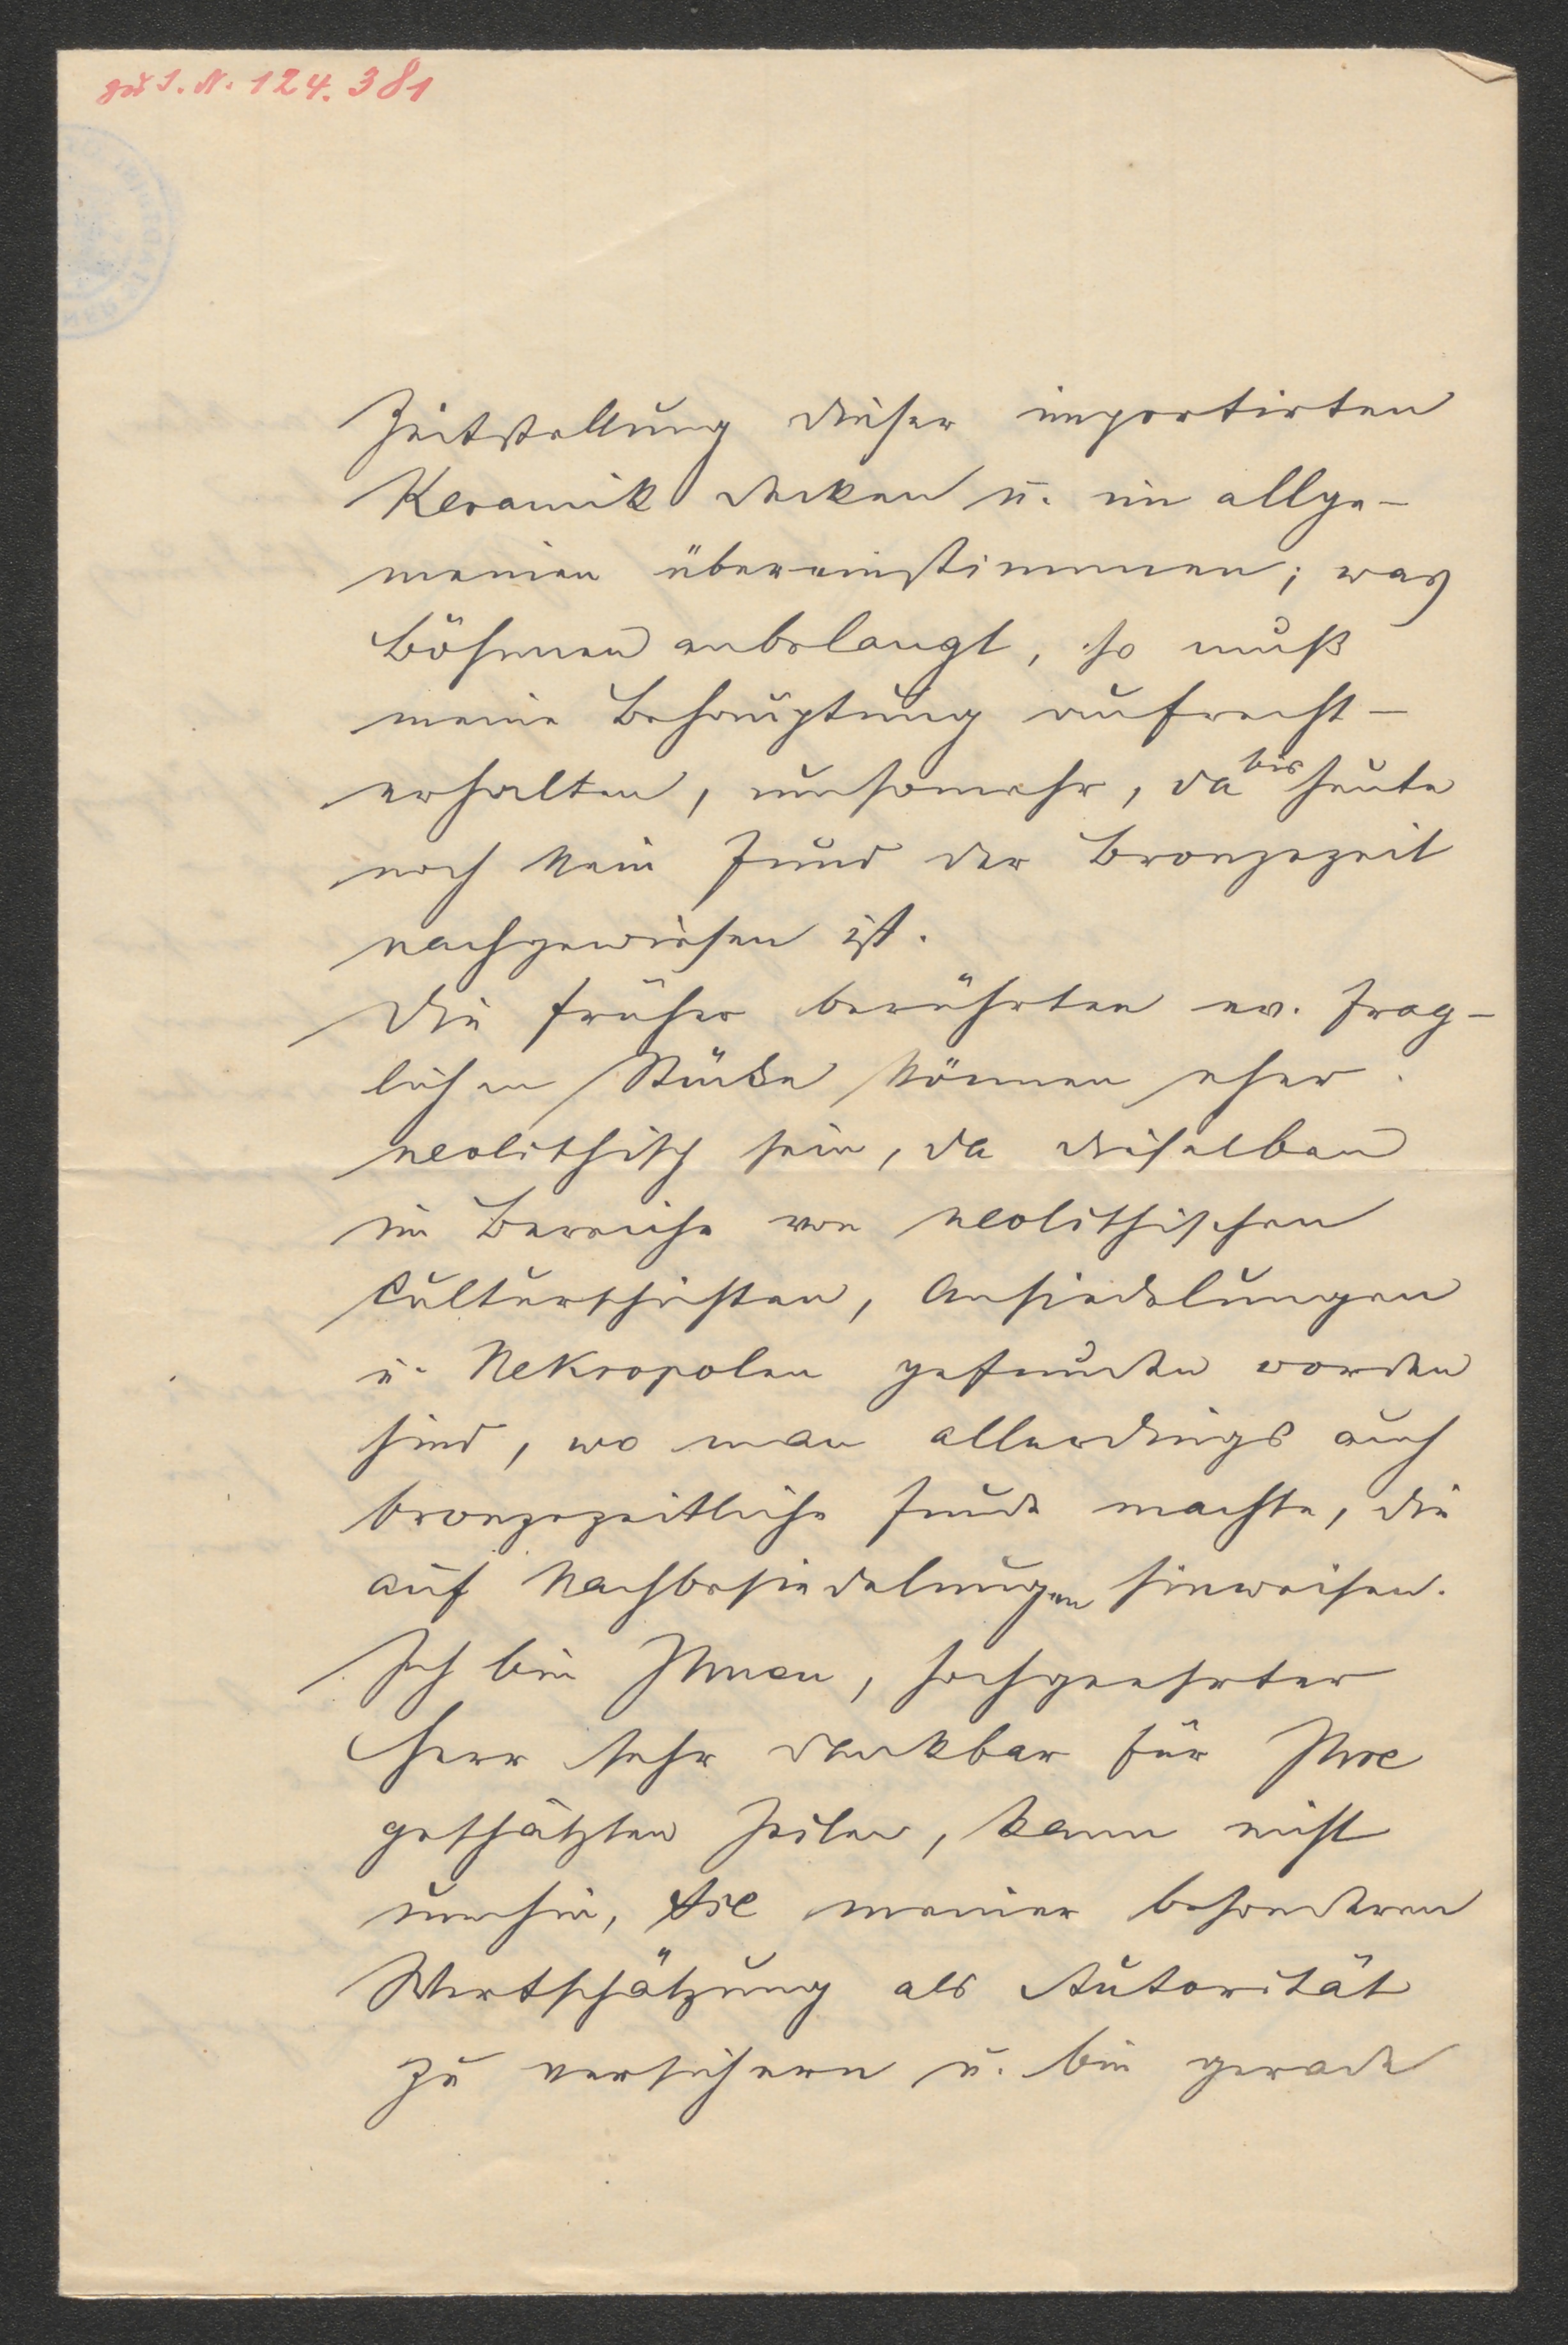 zu I. N. 124.381
Zeitstellung dieser importirten
Keramik decken u. im allge-
meinen übereinstimmen; was
Böhmen anbelangt, so muß
meine Behauptung aufrecht-
erhalten, umsomehr, da bis heute
noch kein Fund der Bronzezeit
nachgewiesen ist.
Die früher berührten ev. frag-
lichen Stücke können eher
neolithisch sein, da dieselben
im Bereiche von neolithischen
Culturschichten, Ansiedelungen
u. Nekropolen gefunden worden
sind, wo man allerdings auch
bronzezeitliche Funde machte, die
auf Nachbesiedelungen hinweisen.
Ich bin Ihnen, hochgeehrter
Herr sehr dankbar für Ihre
geschätzten Zeilen, kann nicht
umhin, Sie meiner besonderen
Wertschätzung als Autorität
zu versichern u. bin gerade